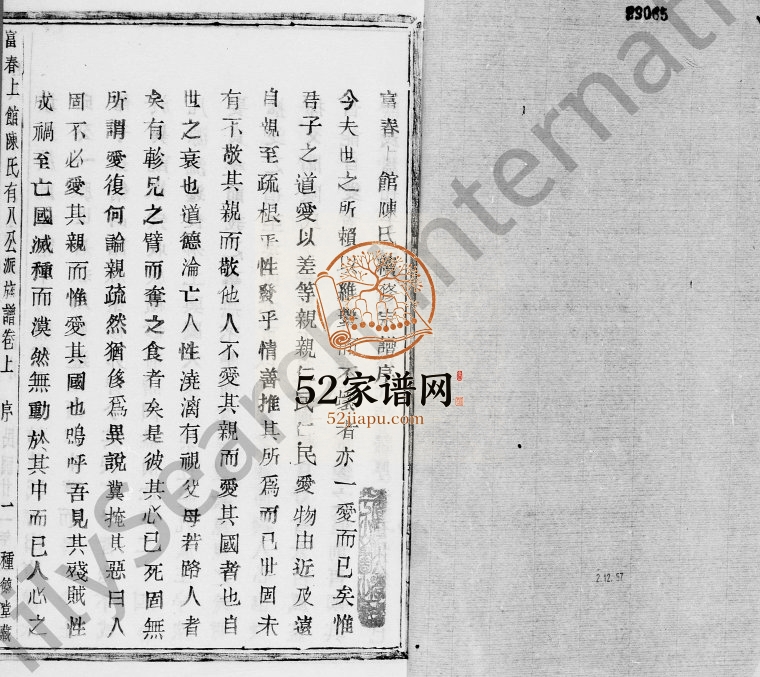 富春上館陳氏 修宗譜序
今夫世之所賴 維繫 不 者亦一愛而已矣惟
君子之道愛以差等親親仁民仁民愛物由近及遠
自親至疏根乎性發乎情善推其所爲而已世固未
有不敬其親而敬他人不愛其親而愛其國者也自
世之衰也道德淪亡人性澆漓有視父母若路人者
矣有軫兄之臂而奪之食者矣是彼其心已死固無
所謂愛復何論親疏然猶侈爲異說冀掩其惡曰人
固不必愛其親而惟愛其國也嗚呼吾見其殘賊性
成禍至亡國滅種而漠然無動於其中而已人心之
富春上館陳氏有八公派族譜卷上 序 一 種 堂藏
52家谱网
52jiapu.com
89065
2.12.57
FamilySearch International